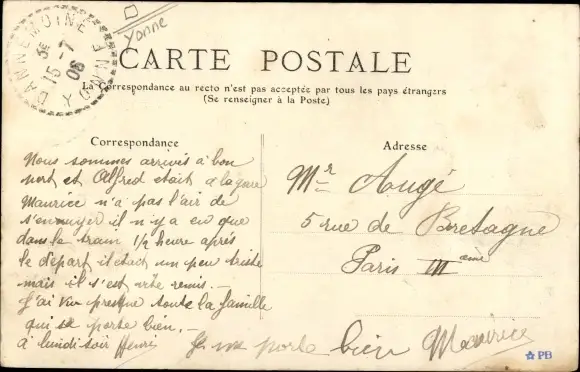 DANNEMOINE
YONNE
3E
15 - 7
06
Yonne
CARTE POSTALE
La Correspondance au recto n'est pas acceptée par tous les pays étrangers
(Se renseigner à la Poste)
Correspondance
Nous sommes arrivés à bon
port et Alfred etait à la gare
Maurice n'a pas l'air de
s'ennuyer il n'y a eu que
dans le train 1/2 heure après
le départ il était un peu triste
mais il s'est vite remis. —
J'ai vu presque toute la famille
qui se porte bien. —
à lundi soir Henri
Je me porte bien Maurice
Adresse
Mr Augé
5 rue de Bretagne
Paris IIIème
PB